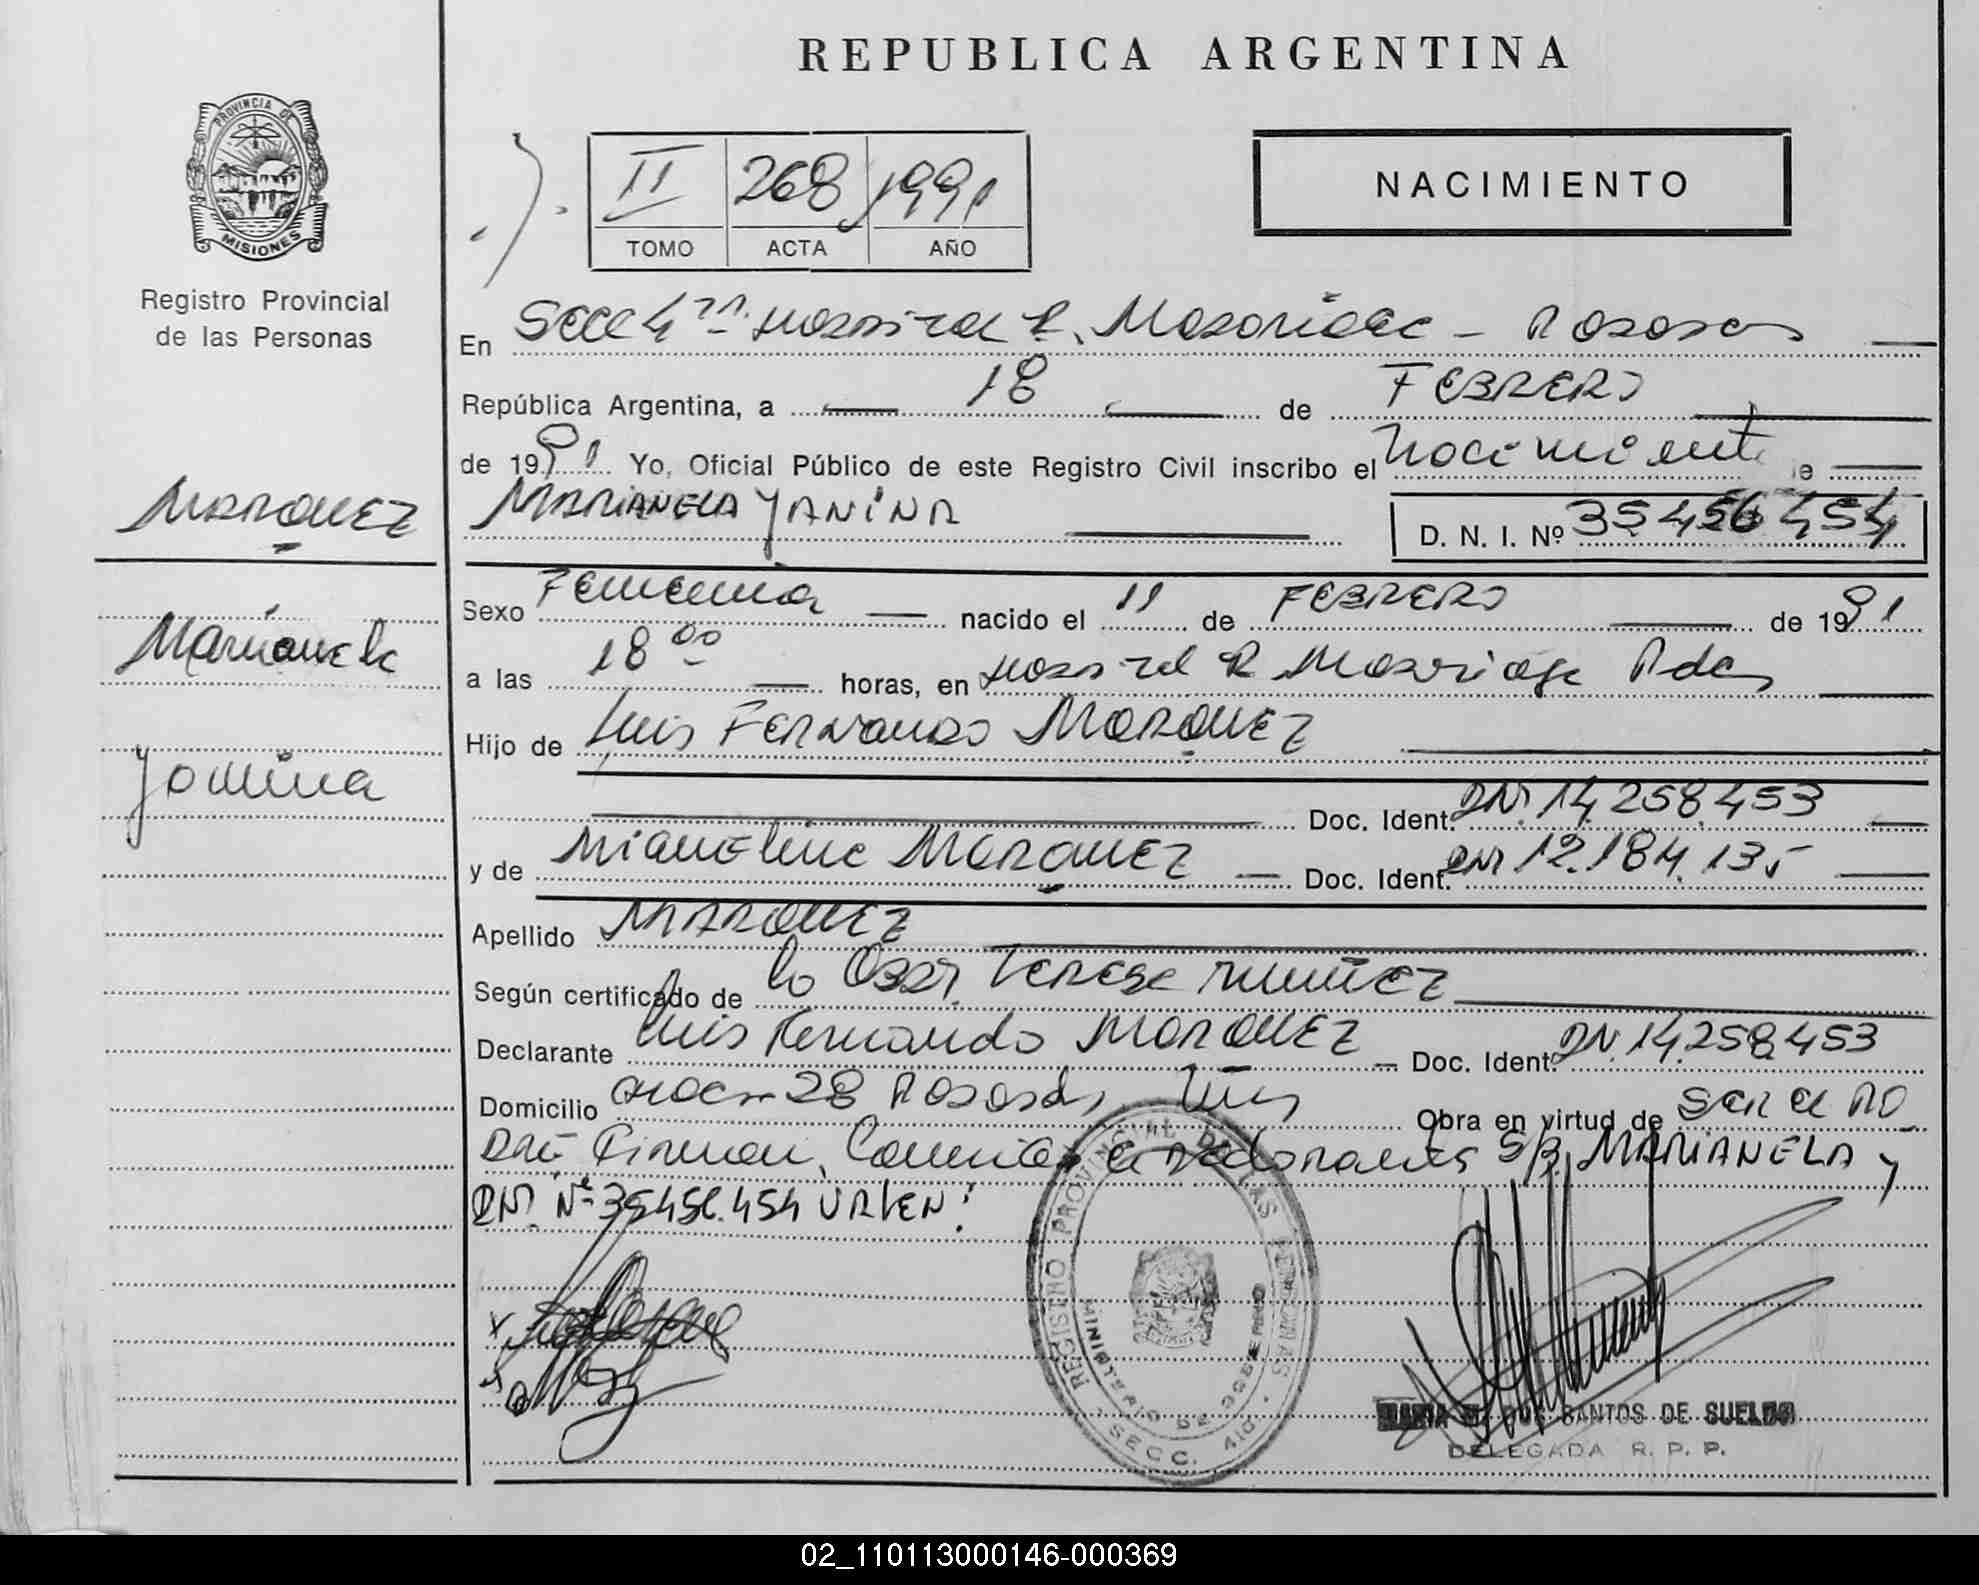 REPUBLICA ARGENTINA
PROVINCIA DE
MISIONES
Registro Provincial
de las Personas
II 268 1991
TOMO ACTA AÑO
NACIMIENTO
En Secc 4ta. Hospital R. Madariaga - Posadas
República Argentina, a 18 de FEBRERO
de 1991 Yo, Oficial Público de este Registro Civil inscribo el Nacimiento de
MARQUEZ
MARIANELA YANINA D. N. I. Nº 35456454
Marianela
Yanina
Sexo Femenina nacido el 11 de FEBRERO de 1991
a las 18 00 horas, en Hospital R Madariaga Pdas
Hijo de Luis Fernando MARQUEZ
Doc. Ident. DNI 14.258.453
y de Miguelina MARQUEZ Doc. Ident. DNI 12.184.135
Apellido MARQUEZ
Según certificado de la Obst. Terese Nuñez
Declarante Luis Fernando MARQUEZ Doc. Ident. DNI 14.258.453
Domicilio 28 Posadas Mnes Obra en virtud de ser el PA
DRE Firman, S/R. MARIANELA y
DNI Nº 35456.454 VALEN
REGISTRO PROVINCIAL DE LAS PERSONAS
MINISTERIO DE GOBIERNO
SECC. 4ta.
MARIA DOS SANTOS DE SUELDO
DELEGADA R. P. P.
02_110113000146-000369